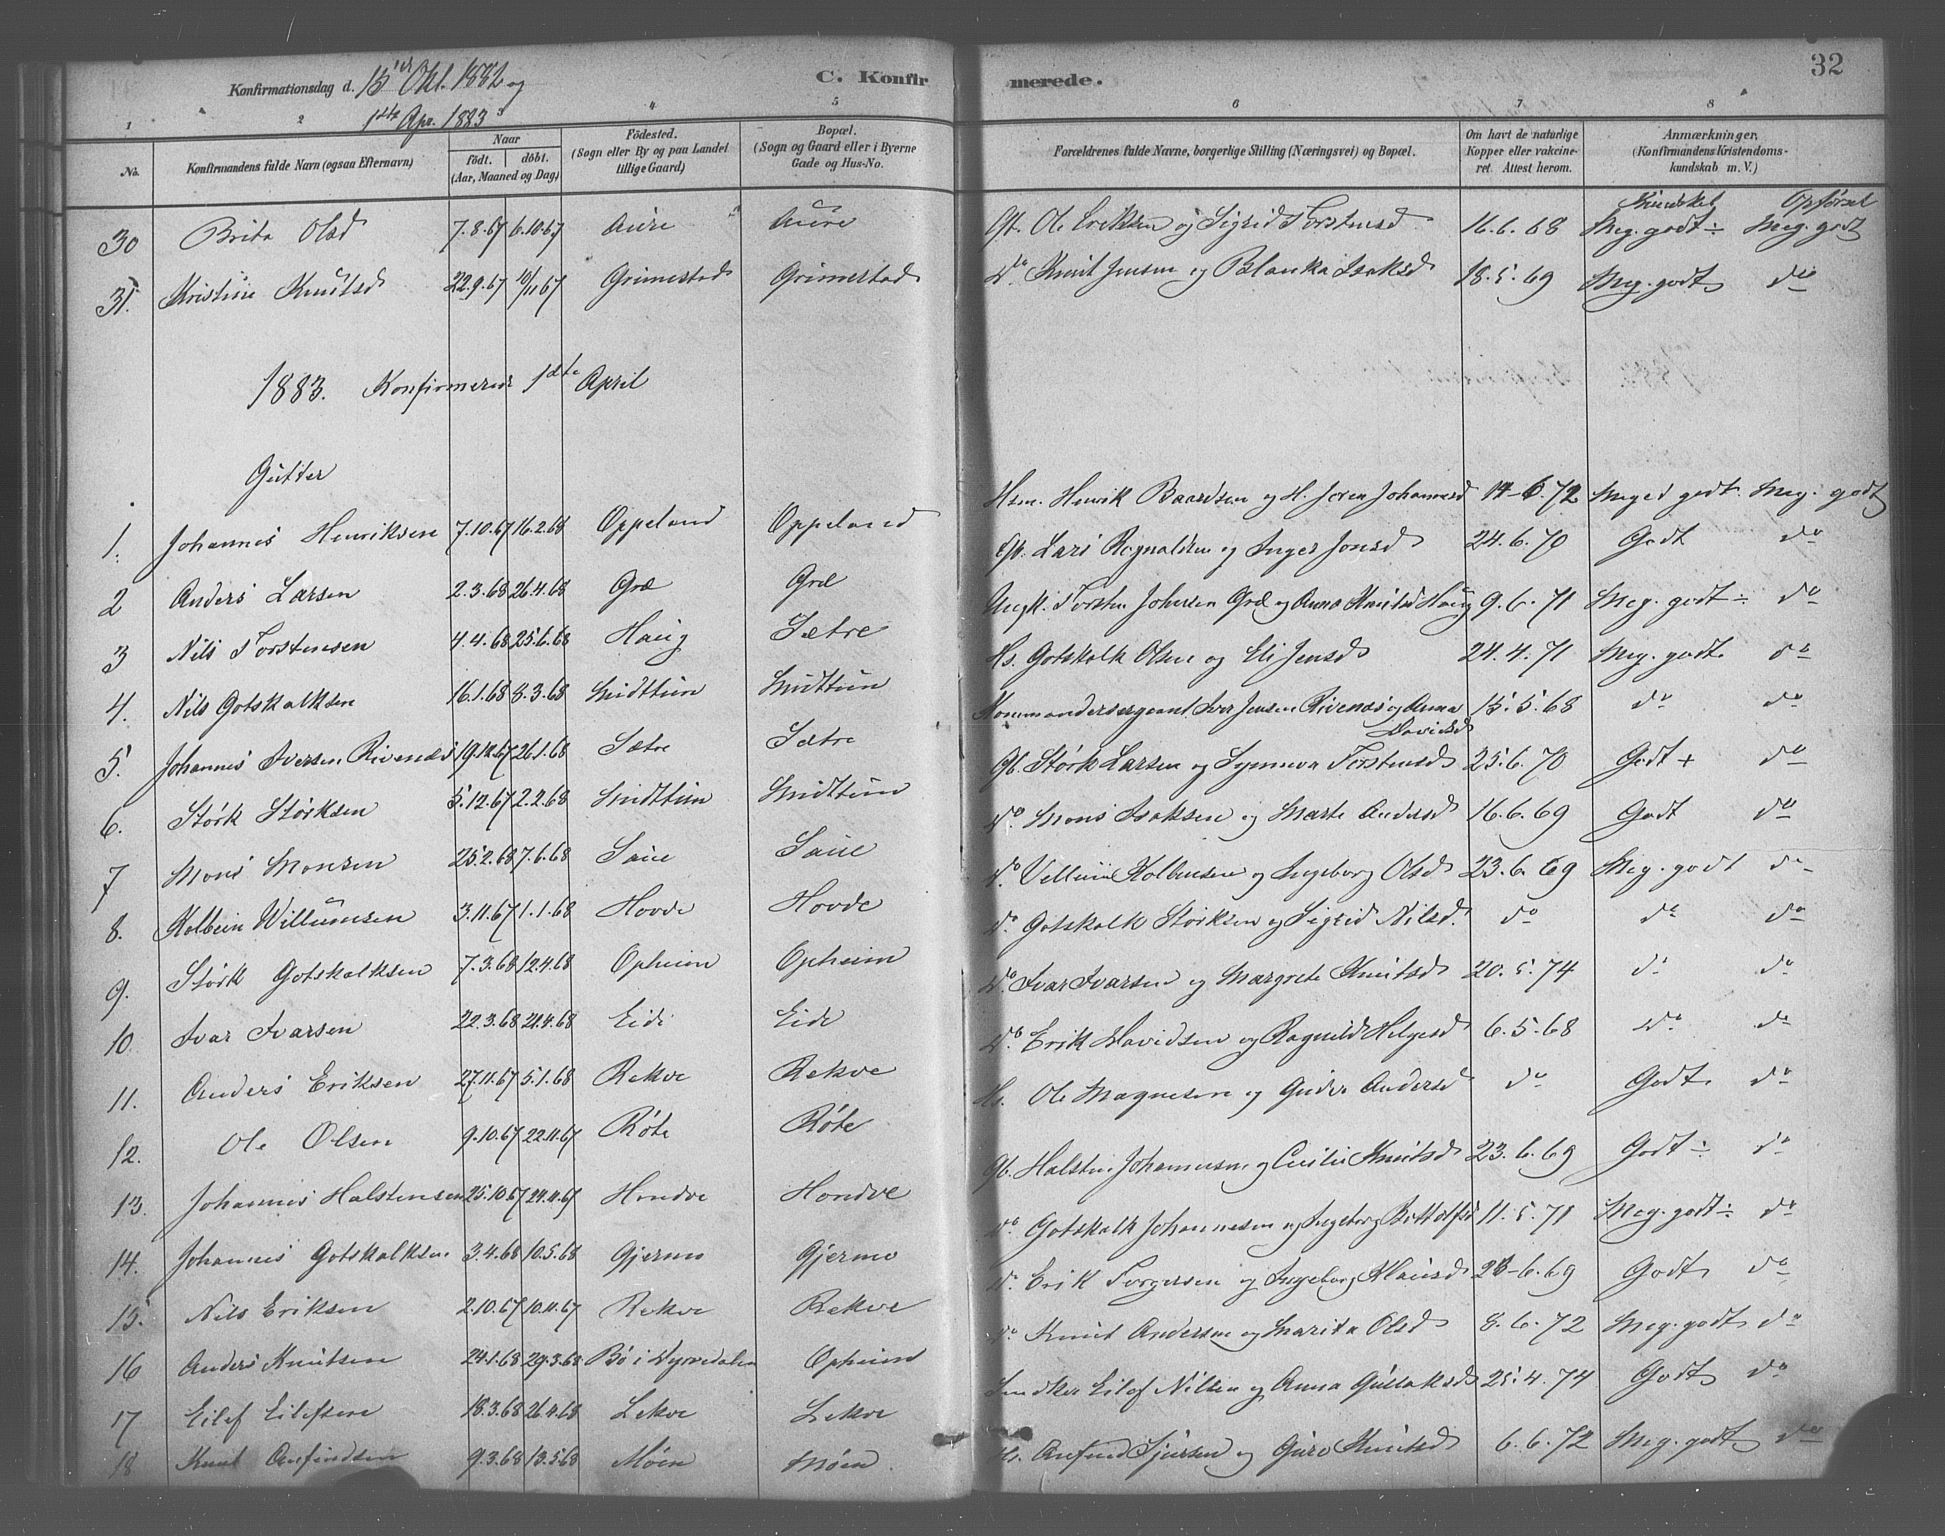 Konfirmationsdag d. 15de Okt. 1882 og
1ste Apr. 1883
C. Konfirmerede.
32
1 2 3 4 5 6 7 8
No. Konfirmandens fulde Navn (ogsaa Efternavn) Naar födt. döbt. (Aar, Maaned og Dag) Födested. (Sogn eller By og paa Landet tillige Gaard) Bopæl. (Sogn og Gaard eller i Byerne Gade og Hus-No. Forældrenes fulde Navne, borgerlige Stilling (Næringsvei) og Bopæl. Om havt de naturlige Kopper eller vakcineret Attest herom. Anmærkninger, (Konfirmandens Kristendomskundskab m. V.)
Kundskab Opførsel
30 Brita Olsd 7.8.67 6.10.67 Aure Aure Gb. Ole Eriksen og Sigrid Torstensd 16.6.68 Meg. godt ÷ Meg. godt
31. Kristine Knutsd 22.9.67 10/11 67 Grimestad Grimestad do Knut Jensen og Blanka Isaksd 18.5.69 Meg. godt do
1883. Konfirmerede 1ste April
Gutter
1. Johannes Henriksen 7.10.67 16.2.68 Oppeland Oppeland Hsm. Henrik Baardsen og H. Joren Johannesd 14-6.72 Meget godt. Meg. godt
2 Anders Larsen 2.3.68 26.4.68 Græ Græ Gb. Lars Ragnaldsen og Inger Jonsd 24.6.70 Godt do
3 Nils Torstensen 4.4.68 25.6.68 Haug Sætre Ungk. Torsten Johnsen Græ og Anna Knutsd Haug 9.6.71 Meg. godt ÷ do
4. Nils Gotskalksen 16.1.68 8.3.68 Midttun Midttun Hs. Gotskalk Olsen og Eli Jensd 24.4.71 Meg. godt do
5. Johannes Iversen Rivenæs 19.12.67 26.1.68 Sætre Sætre Kommandersergeant Iver Jensen Rivenæs og Anna Davidsd 15.5.68 do do
6. Størk Størksen 5.12.67 2.2.68 Midttun Midttun Gb. Størk Larsen og Synneva Torstensd 25.6.70 Godt + do
7 Mons Monsen 25.2.68 7.6.68 Saue Saue do. Mons Isaksen og Marte Andersd 16.6.69 Godt do
8. Kolbein Willumsen 3.11.67 1.1.68 Hovde Hovde do Vellum Kolbensen og Ingeborg Olsd 23.6.69 Meg. godt do
9. Størk Gotskalksen 7.3.68 12.4.68 Opheim Opheim do Gotskalk Størksen og Sigrid Nilsd. do do do
10. Ivar Ivarsen 22.3.68 21.4.68 Eide Eide do Ivar Ivarsen og Margrete Knutsd 20.5.74 do do
11. Anders Eriksen 27.11.67 5.1.68 Rekve Rekve do Erik Davidsen og Ragnild Helgesd 6.5.68 do do
12. Ole Olsen 9.10.67 22.11.67 Røte Røte Hs. Ole Magnesen og Guder Andersd do Godt. do
13. Johannes Halstensen 25.10.67 24.11.67 Hondve Hondve Gb. Halsten Johannesen og Cecilie Knutsd 23.6.69 Godt ÷ do
14. Johannes Gotskalksen 3.4.68 10.5.68 Gjermo Gjermo do Gotskalk Johannesen og Ingeborg 11.5.71 Meg. godt ÷ do
15. Nils Eriksen 2.10.67 10.11.67 Rekve Rekve do Erik Torgersen og Ingeborg Klausd 28-6.69 Godt do
16 Anders Knutsen 24.1.68 29.3.68 Bø i Dyrvedalen Opheim do Knut Andersen og Marita Olsd 8.6.72 Meg. godt do
17 Eilef Eilefsen 18.3.68 26.4.68 Lekve Lekve Eilef Nilsen og Anna Gullaksd 25.4.74 Godt do
18 Knut Anfindsen 9.3.68 13.5.68 Möen Möen Hs. Anfind Sjursen og Guro Knutsd 6.6.72 Meg. godt do